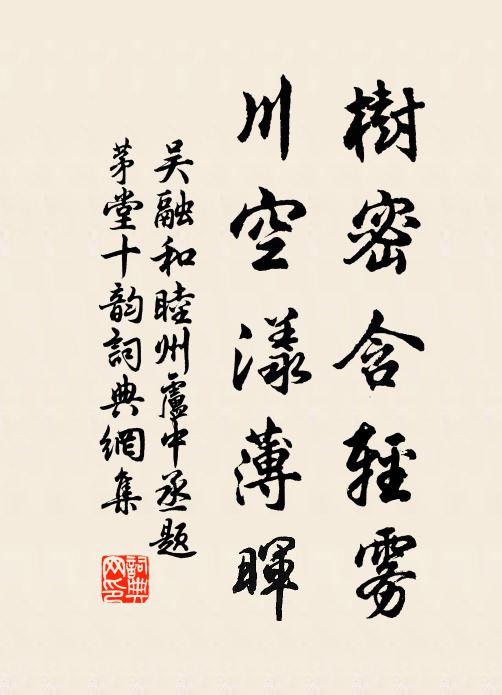 樹密含輕霧
川空漾薄暉
吴融和睦州盧中丞題
茅堂十韵詞典網集
詞典网印